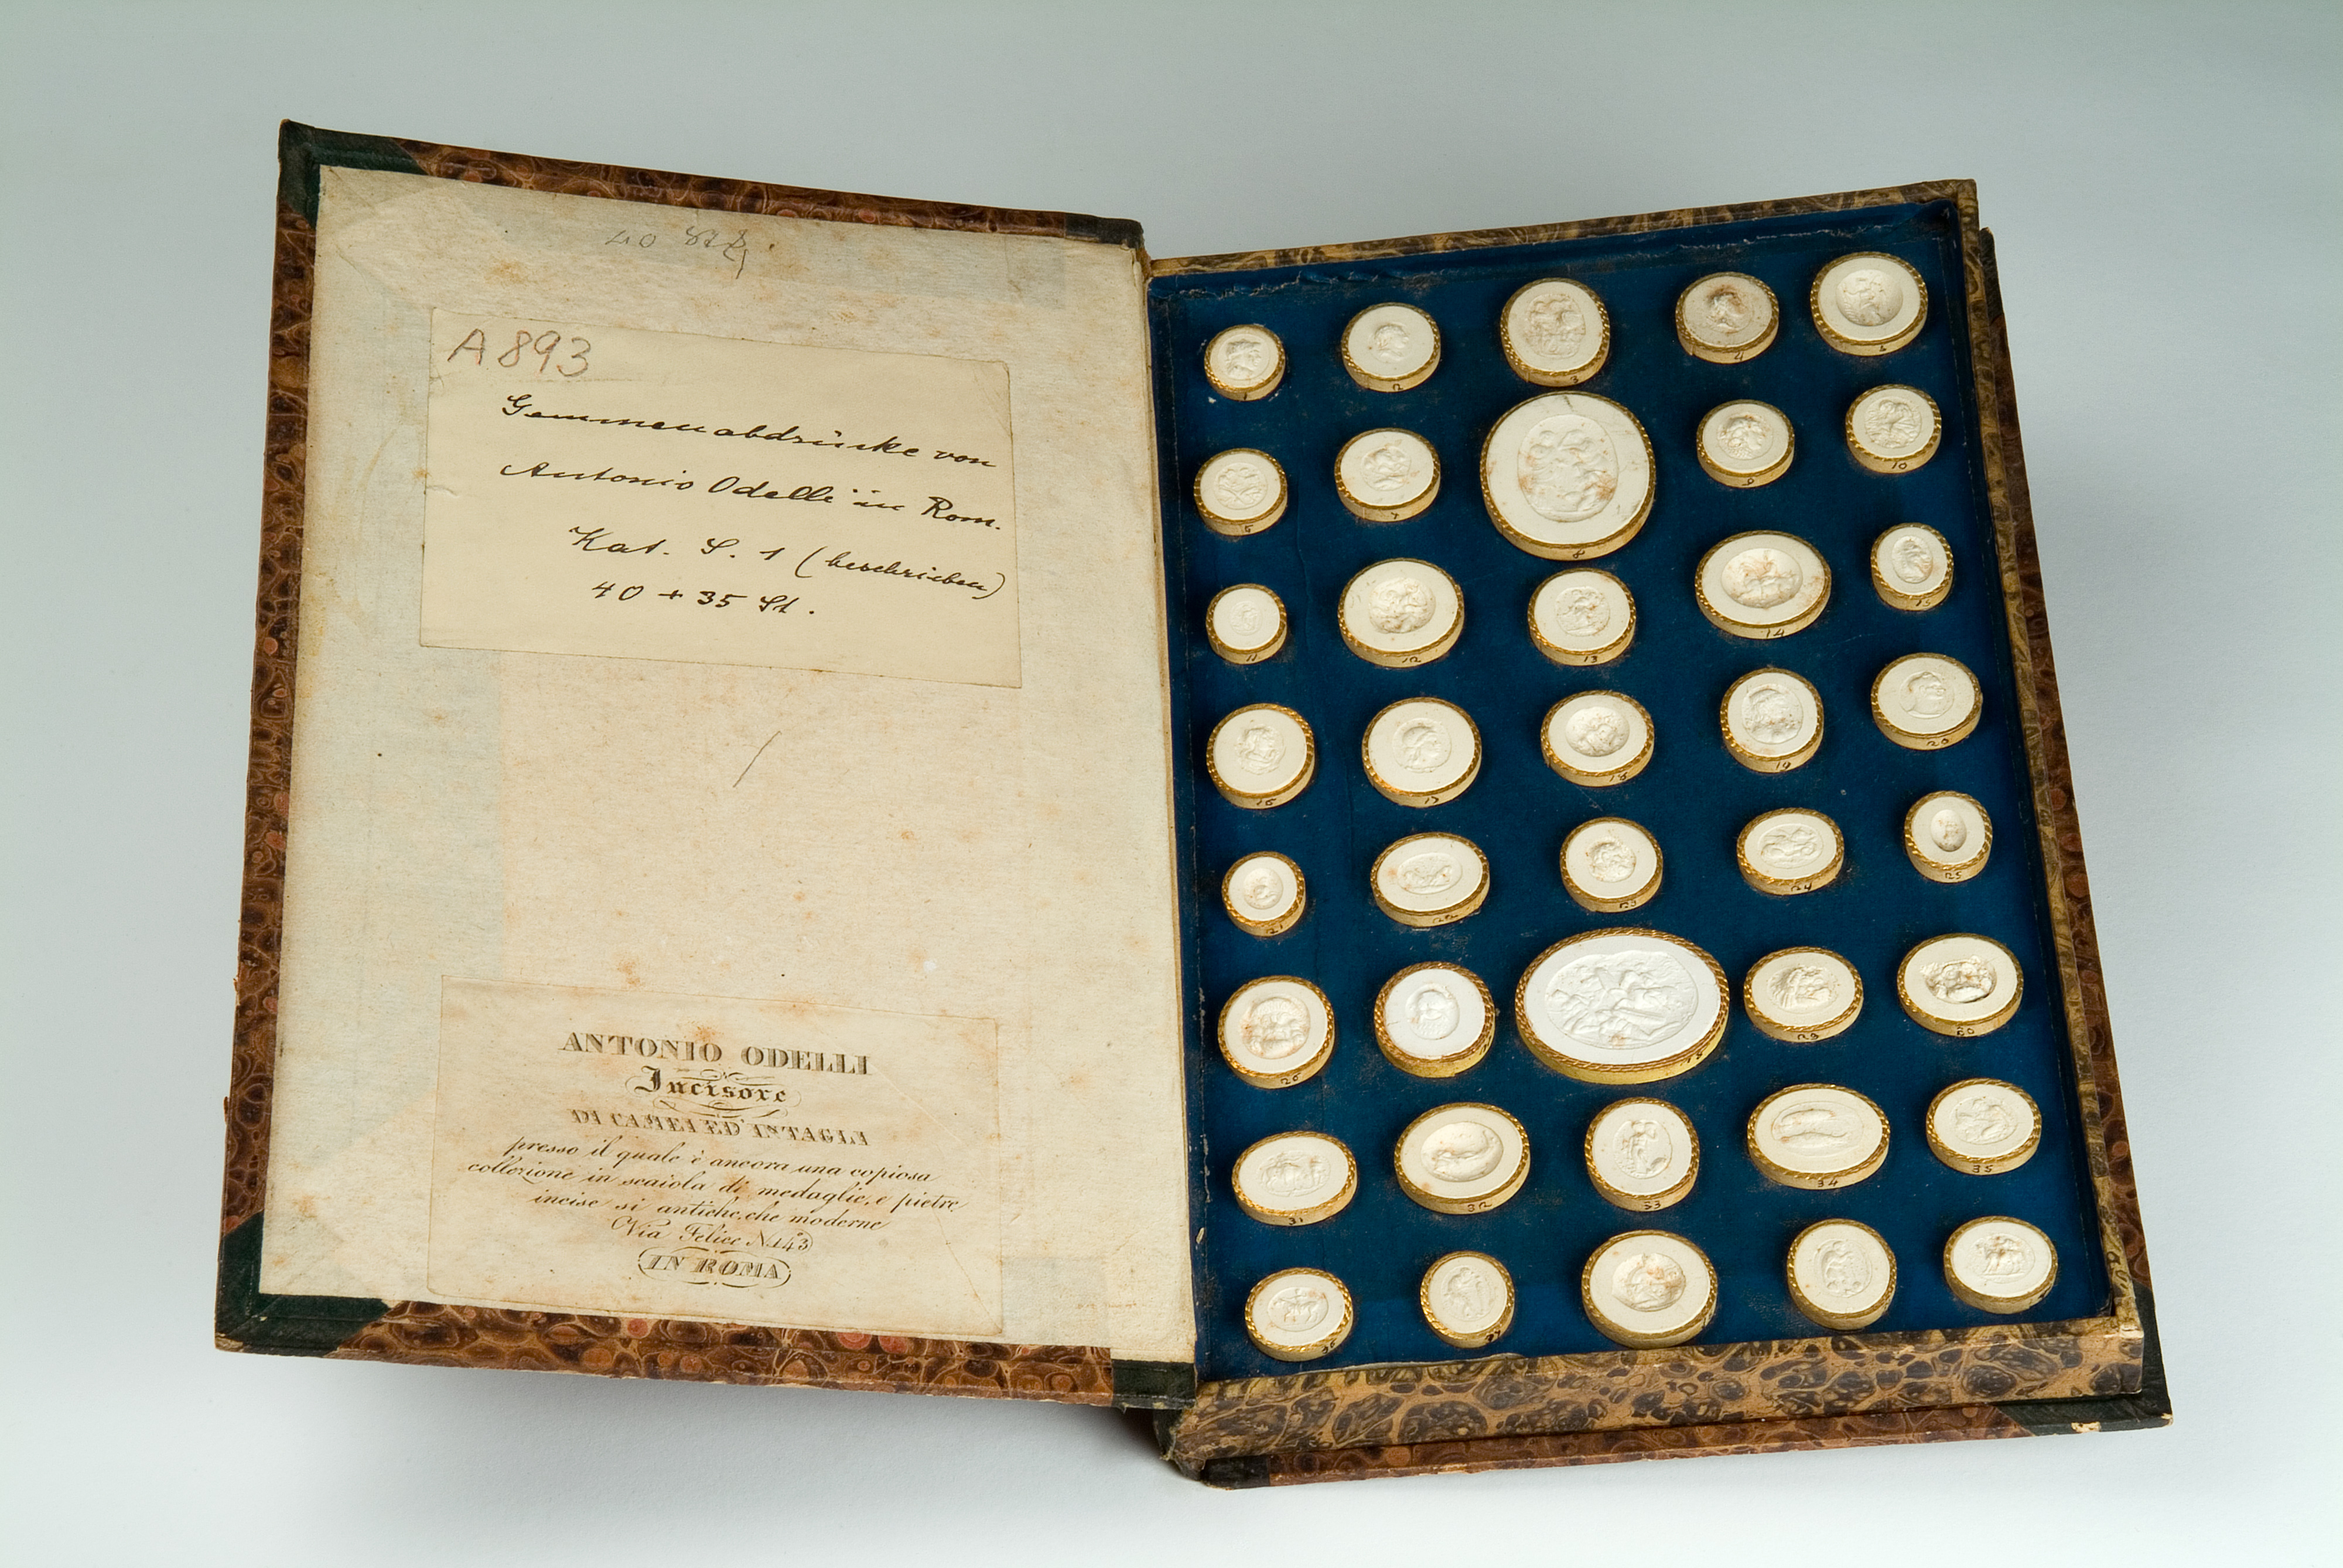 40 Stk.
A 893
Gemmenabdrücke von
Antonio Odelli in Rom.
Kat. S. 1 (beschrieben)
40 + 35 St.
ANTONIO ODELLI
Incisore
DI CAMEI ED INTAGLI
presso il quale è ancora una copiosa
collezione in scaiola di medaglie, e pietre
incise si antiche, che moderne
Via Felice N. 143
IN ROMA
1 2 3 4 5
6 7 8 9 10
11 12 13 14 15
16 17 18 19 20
21 22 23 24 25
26 29 30
31 32 33 34 35
36 37